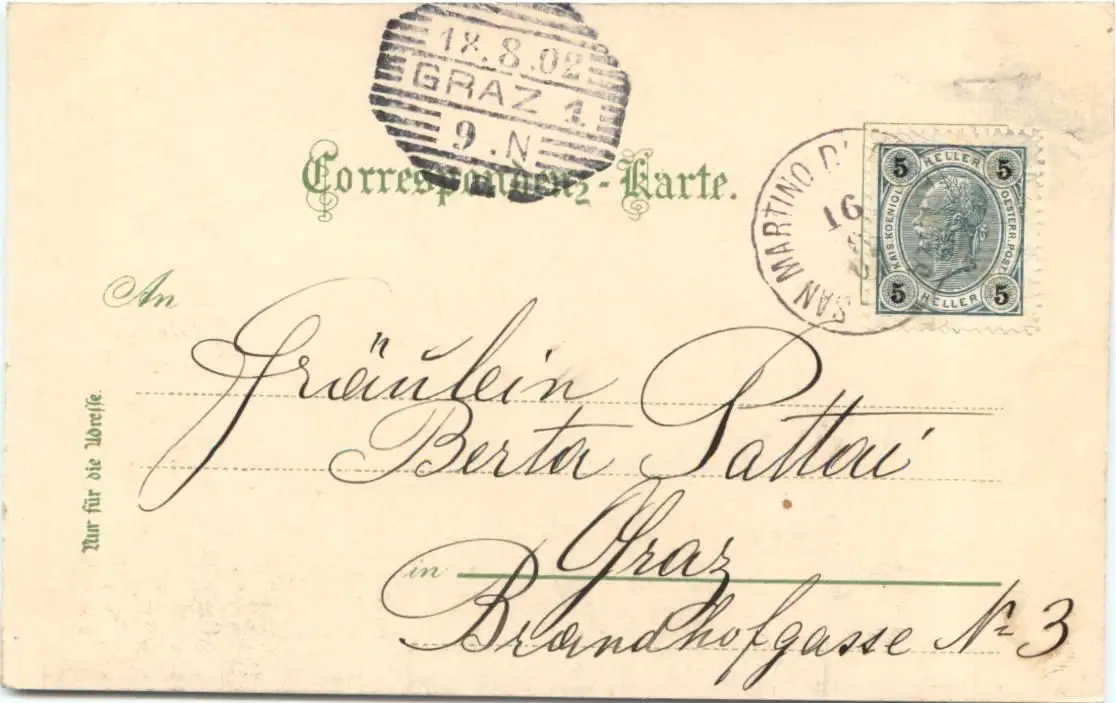 18.8.02
GRAZ 1
9.N
Correspondenz-Karte.
SAN MARTINO D'
16
5 HELLER 5
KAIS. KOENIGL.
OESTERR. POST
5 HELLER 5
An
Fräulein
Berta Pattai
in Graz
Brandhofgasse No 3
Nur für die Adresse.